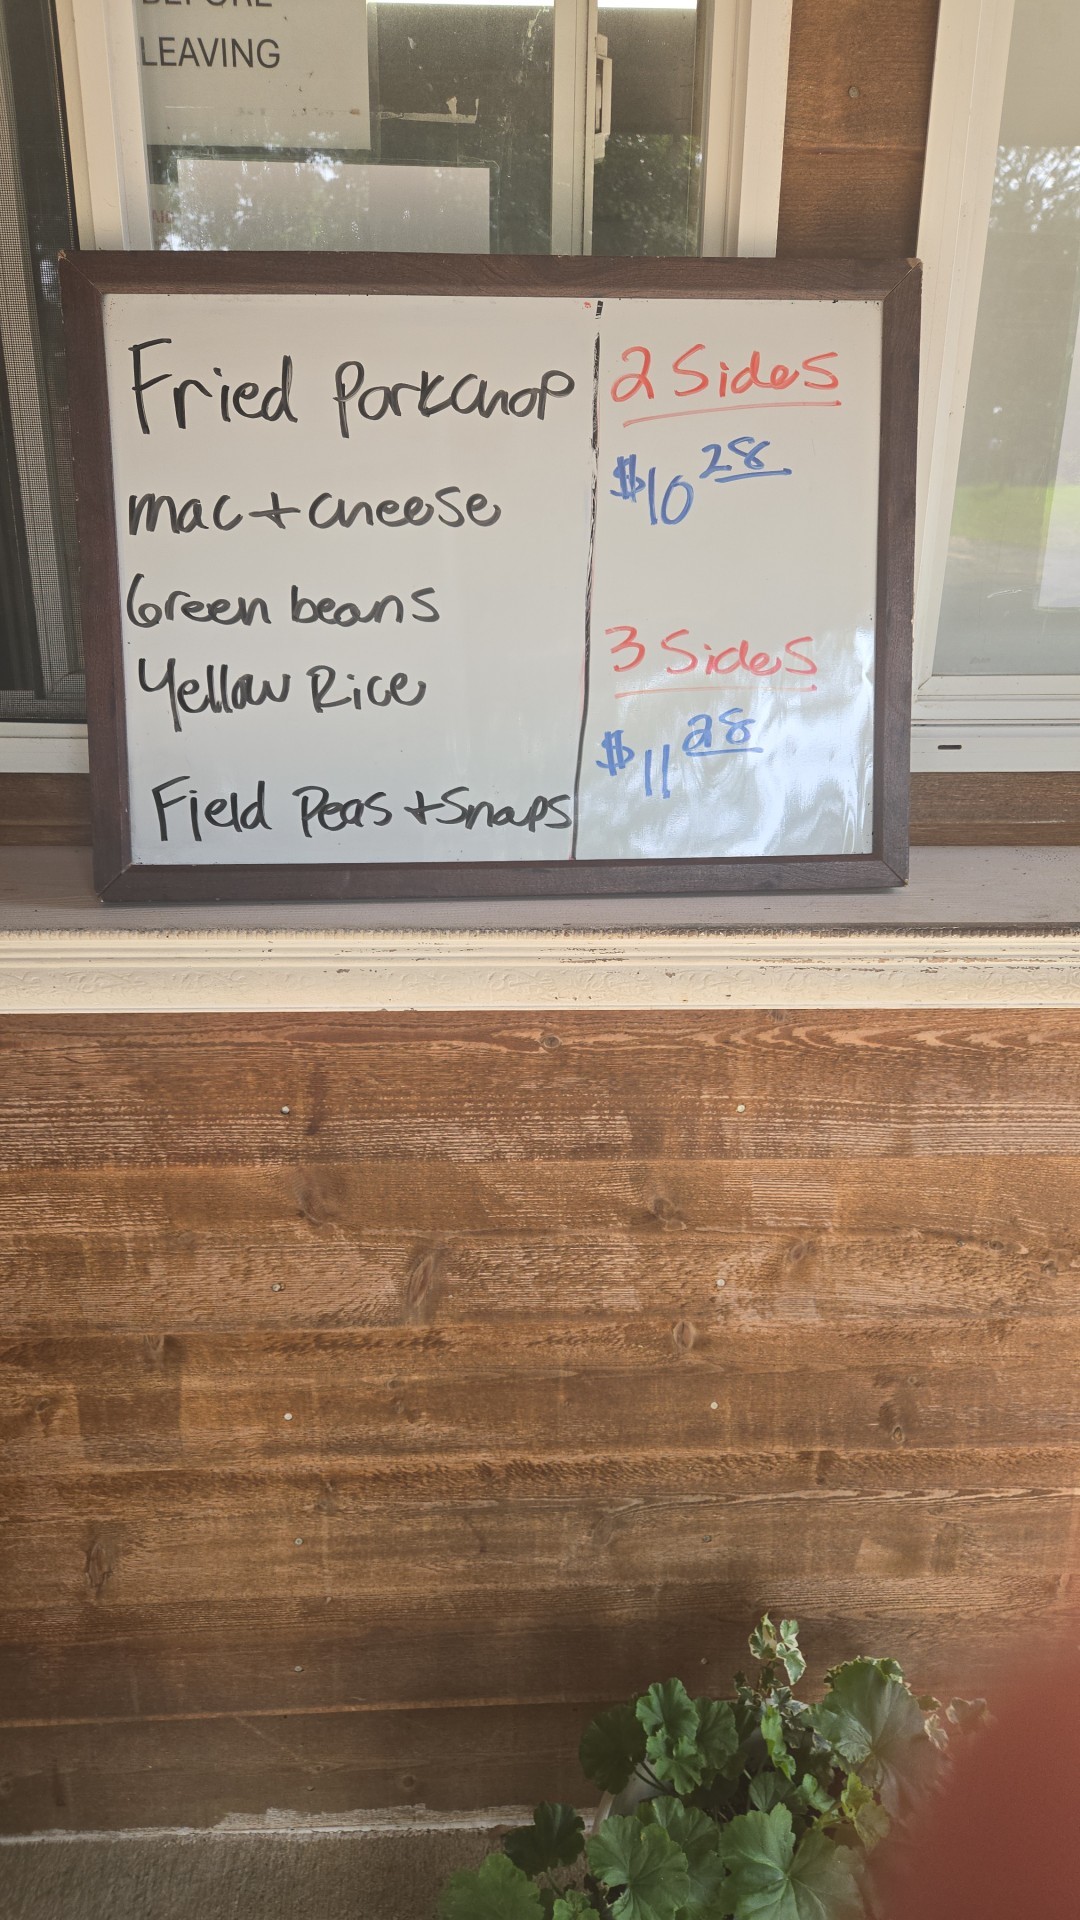 LEAVING
Fried Porkchop
mac + cheese
Green beans
Yellow Rice
Field Peas + Snaps
2 Sides
$10 28
3 Sides
$11 28